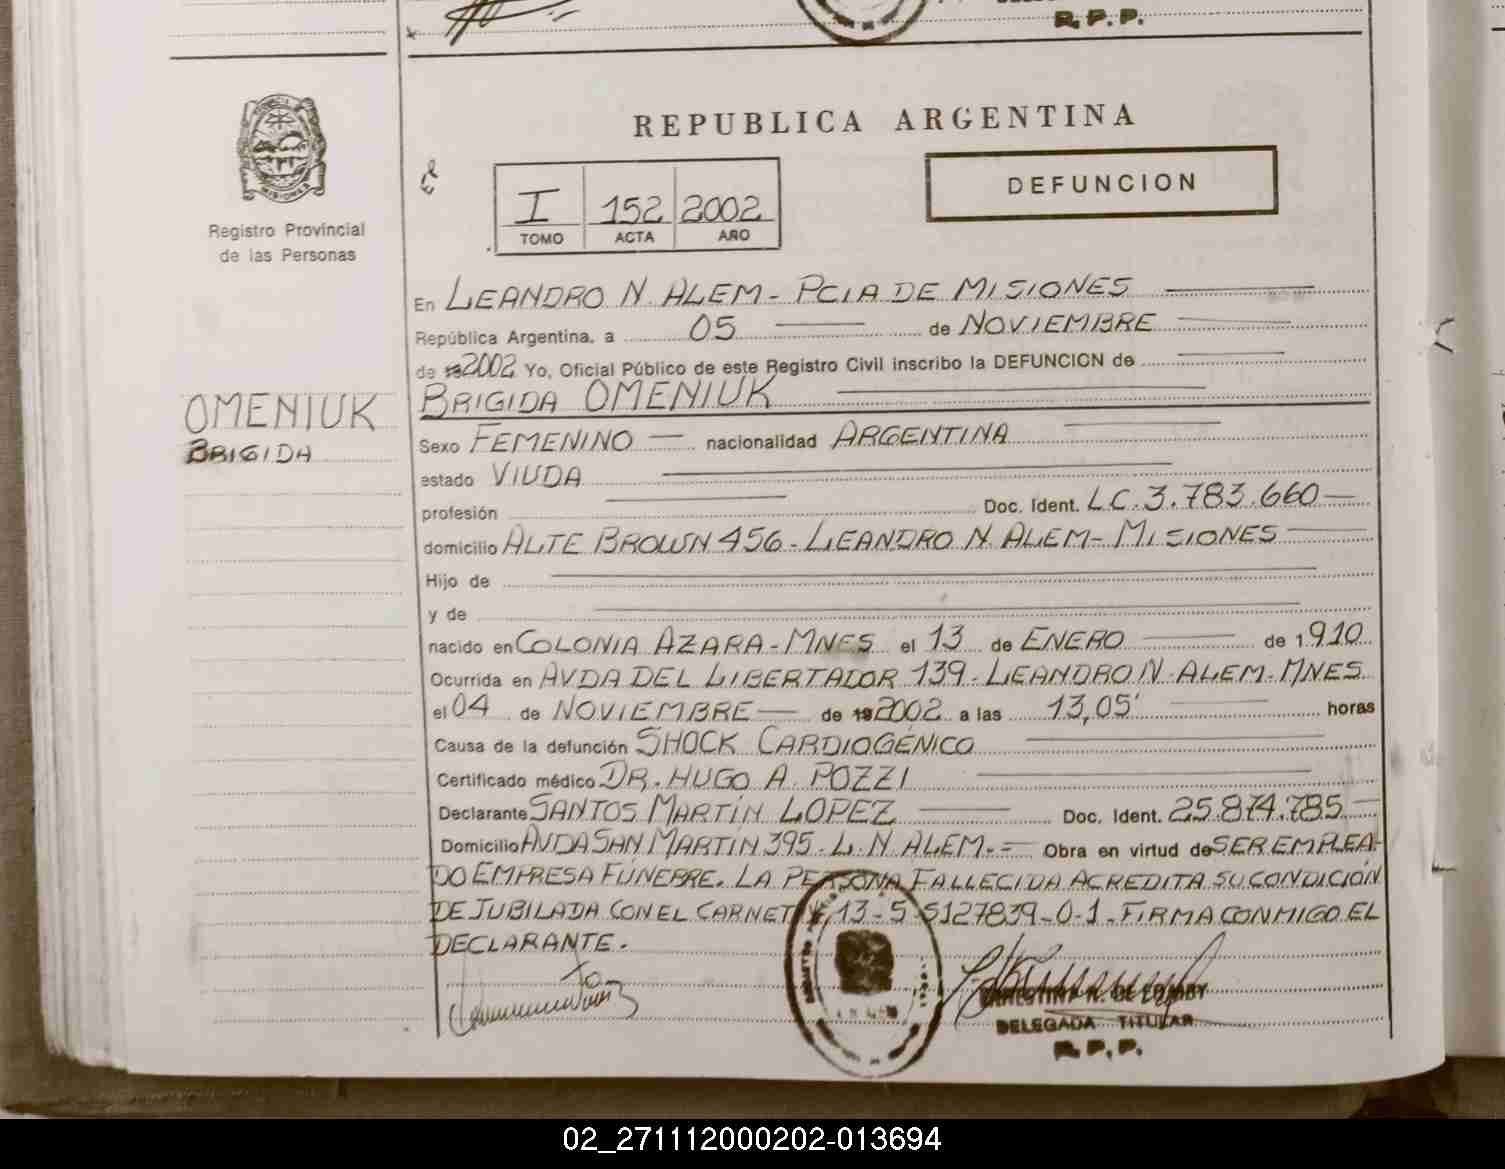 R.P.P.
REPUBLICA ARGENTINA
DEFUNCION
I 152 2002
TOMO ACTA AÑO
Registro Provincial
de las Personas
En LEANDRO N. ALEM - PCIA DE MISIONES
República Argentina, a 05 de NOVIEMBRE
de 2002 Yo, Oficial Público de este Registro Civil inscribo la DEFUNCION de
BRIGIDA OMENIUK
OMENIUK
BRIGIDA
Sexo FEMENINO nacionalidad ARGENTINA
estado VIUDA
profesión Doc. Ident. LC. 3.783.660
domicilio ALTE BROWN 456 - LEANDRO N. ALEM - MISIONES
Hijo de
y de
nacido en COLONIA AZARA - MNES el 13 de ENERO de 1910
Ocurrida en AVDA DEL LIBERTADOR 139 - LEANDRO N. ALEM - MNES
el 04 de NOVIEMBRE de 2002 a las 13,05' horas
Causa de la defunción SHOCK CARDIOGÉNICO
Certificado médico DR. HUGO A. POZZI
Declarante SANTOS MARTÍN LOPEZ Doc. Ident. 25.874.785
Domicilio AVDA SAN MARTÍN 395 - L. N. ALEM.- Obra en virtud de SER EMPLEA-
DO EMPRESA FÚNEBRE. LA PERSONA FALLECIDA ACREDITA SU CONDICIÓN
DE JUBILADA CON EL CARNET 13-5-5127839-0-1 - FIRMA CONMIGO EL
DECLARANTE.
DELEGADA TITULAR
R.P.P.
02_271112000202-013694